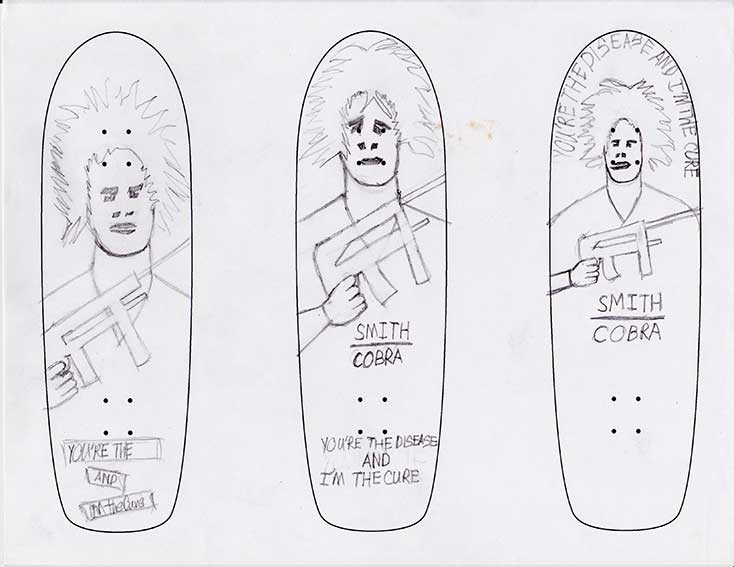 YOU'RE THE
AND
I'M the Cure
SMITH
COBRA
YOU'RE THE DISEASE
AND
I'M THE CURE
YOU'RE THE DISEASE AND I'M THE CURE
SMITH
COBRA